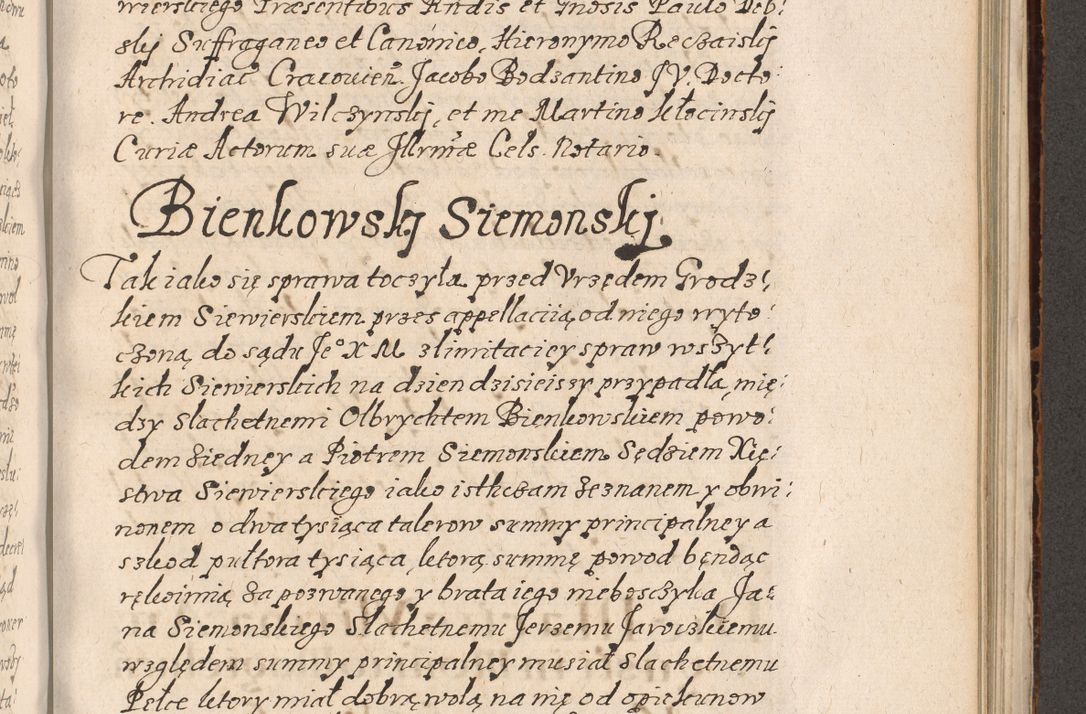 wierskiego Præsentibus Andis et Gnosis Paulo Deb:
skij Suffraganeo et Canonico, Hieronymo Reczaiskij
Archidiac Cracovień. Jacobo Bodzantino JV. Docto
re. Andrea Wilczynskij, et me Martino Kłocinskij
Curiæ Actorum suæ Jllrmæ Cels. Notario.
Bienkowskj Siemonskj.
Tak iako się sprawa toczyła przed Vrzędem Grodz:
kiem Siewierskiem przes appellaciią od niego wyto
czoną do sądu Je° X M z limitaciey spraw wszyt:
kich Siewierskich na dzien dzisieiszy przypadła, mię:
dzy slachetnemi Olbrychtem Bienkowskiem powo
dem ziedney a Piotrem Siemonskiem Sędziem Xię
stwa Siewierskiego iako isthczam zeznanem y obwi:
nonem o dwa tysiąca talerow summy principalney a
szkod pułtora tysiąca, ktorą summę powod będąc
rękoimią za pozwanego y brata iego nieboszczyka Ja:
na Siemonskiego Slachetnemu Jerzemu Jaroczkiemu
względem summy principalney musiał slachetnemu
Pełce ktory miał dobrą wolą na nię od opiekunow